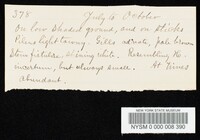 378 July to October
On low shaded ground, and on sticks
Pileus light tawny. Gills adnate, pale brown
Stem fistulose, shining white. Resembling H.
but always small. At times
abundant.
NEW YORK STATE MUSEUM
NYSM 0 000 008 390